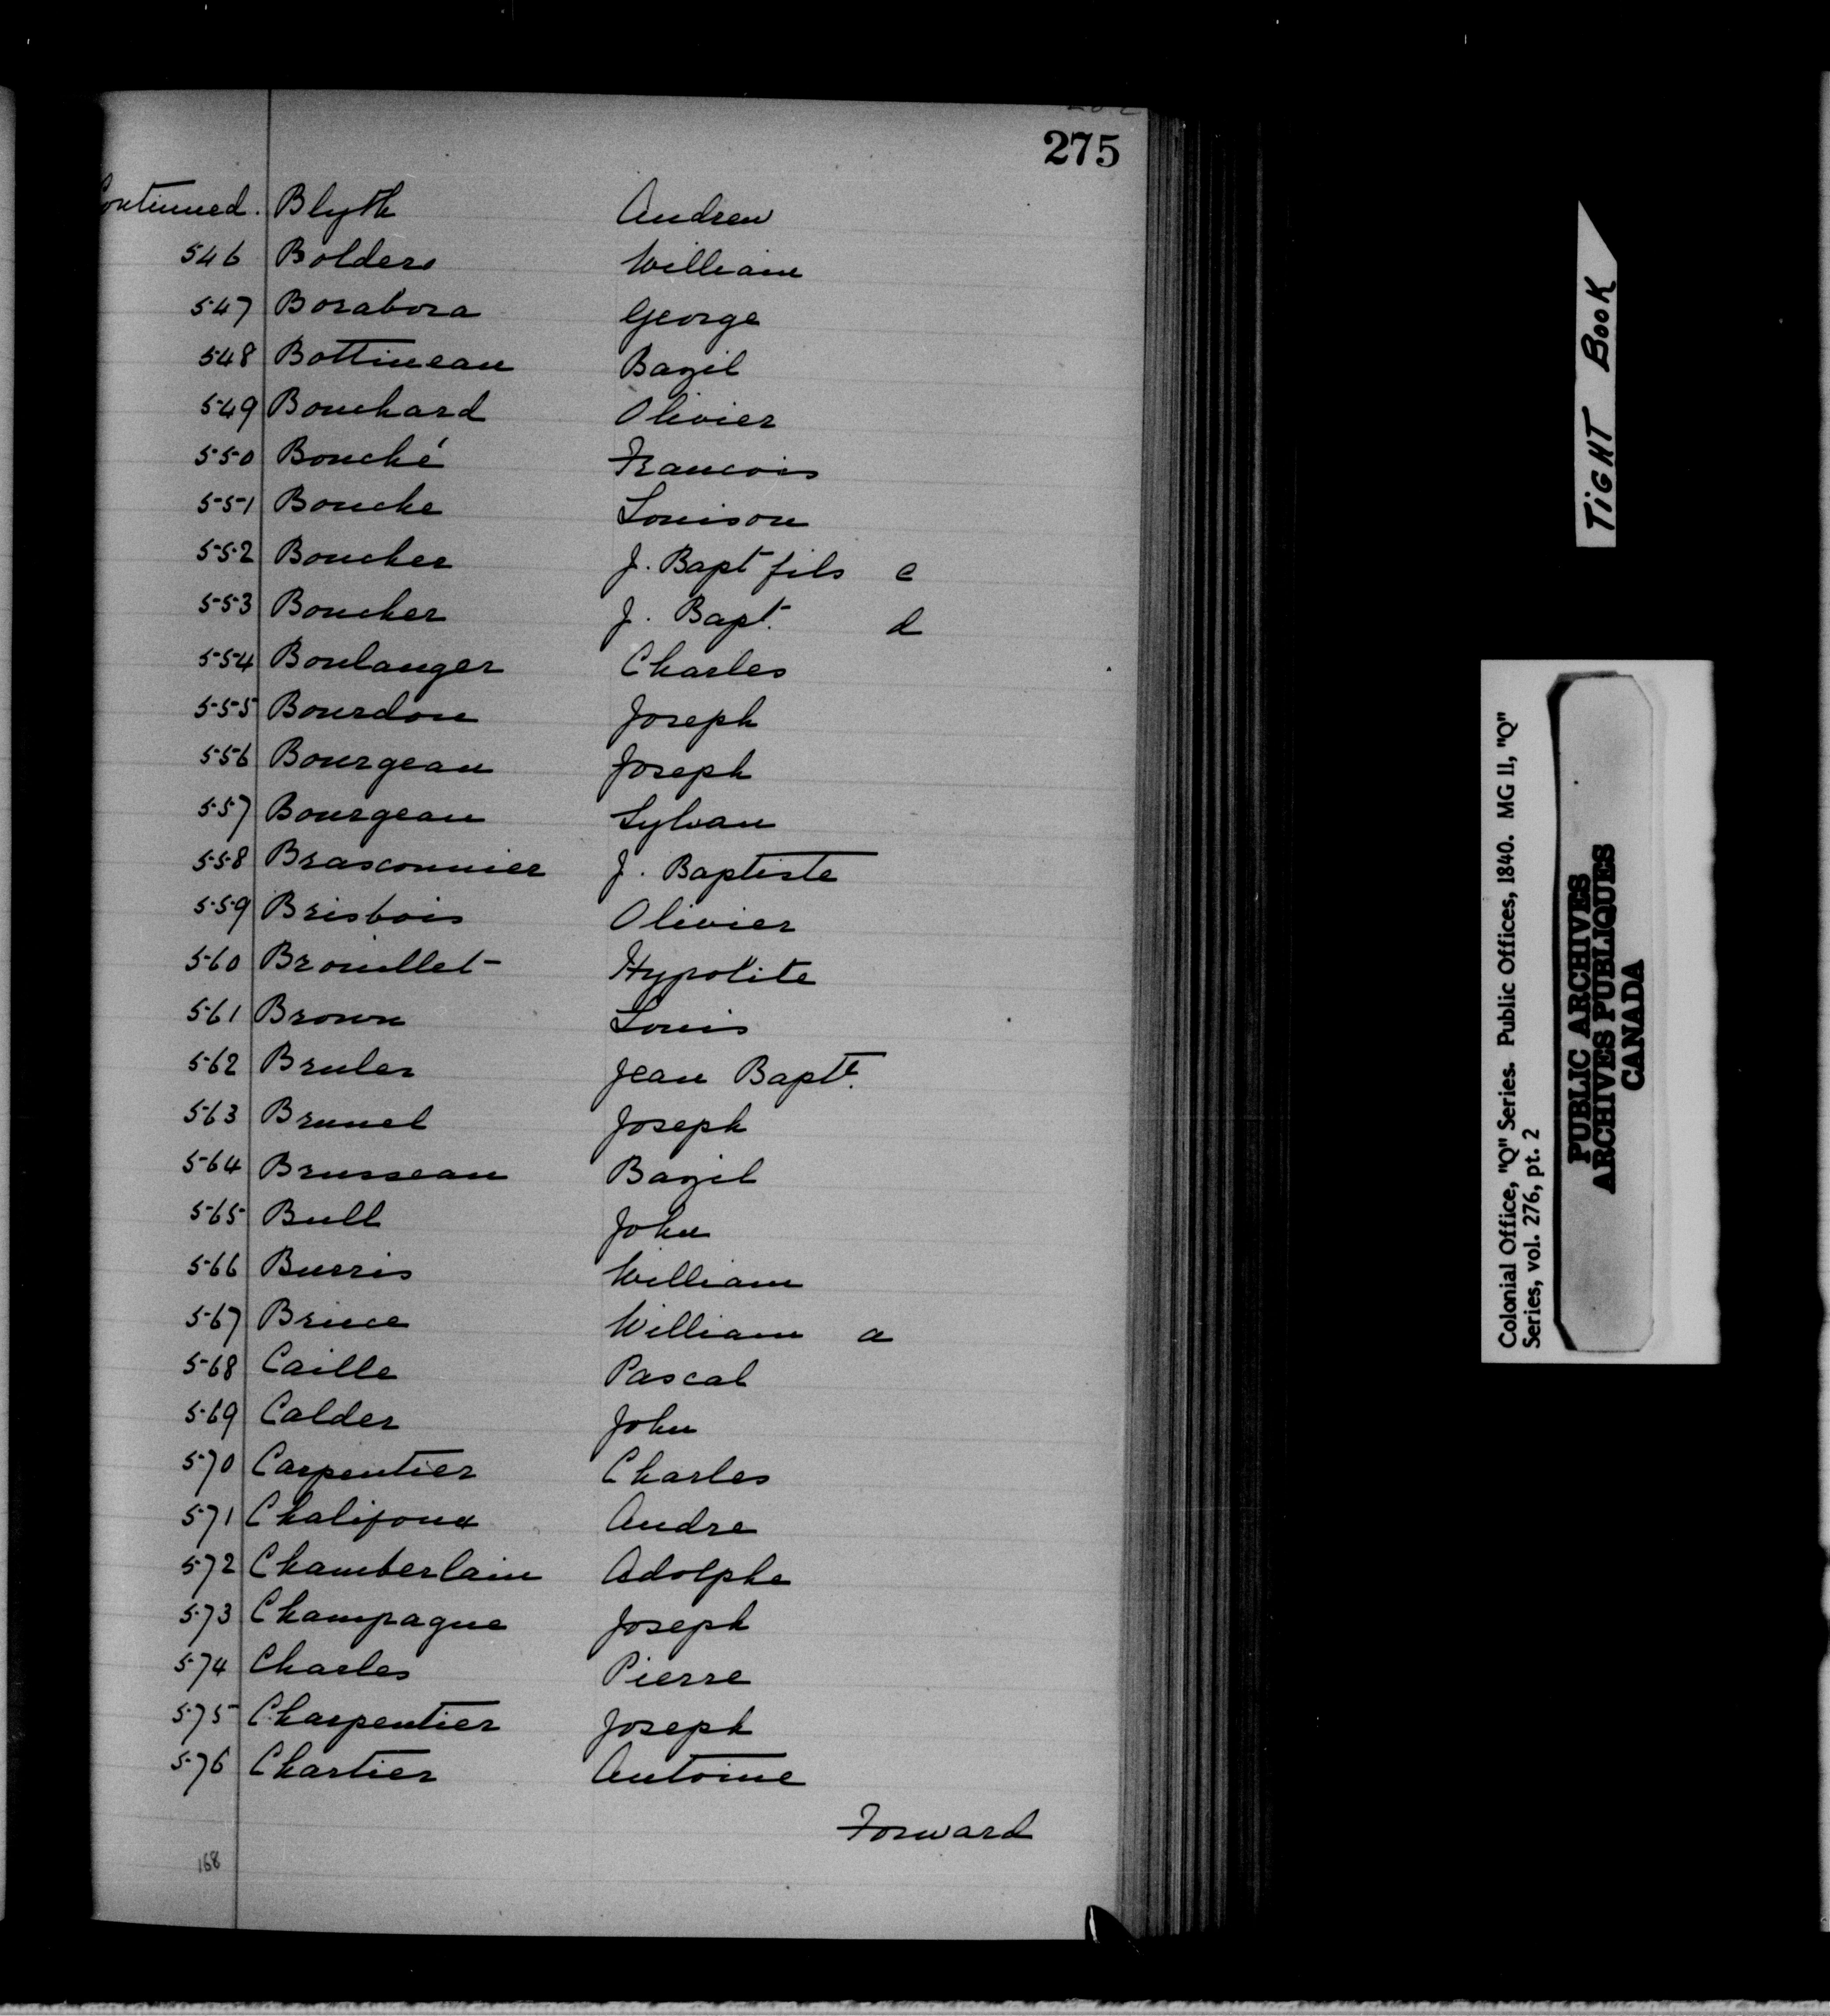 275
Continued. Blyth Andrew
546 Boldero William
547 Borabora George
548 Bottineau Bazil
549 Bouchard Olivier
550 Bouché Francois
551 Bouche Louison
552 Boucher J. Bapt fils c
553 Boucher J. Bapt. d
554 Boulanger Charles
555 Bourdon Joseph
556 Bourgeau Joseph
557 Bourgeau Sylvan
558 Brasconnier J. Baptiste
559 Brisbois Olivier
560 Brouillet Hypolite
561 Brown Louis
562 Bruler Jean Bapte.
563 Brunel Joseph
564 Brusseau Bazil
565 Bull John
566 Burris William
567 Bruce William a
568 Caille Pascal
569 Calder John
570 Carpentier Charles
571 Chalifoux Andre
572 Chamberlain Adolphe
573 Champagne Joseph
574 Charles Pierre
575 Charpentier Joseph
576 Chartier Antoine
Forward
168
TIGHT BOOK
Colonial Office, "Q" Series. Public Offices, 1840. MG 11, "Q"
Series, vol. 276, pt. 2
PUBLIC ARCHIVES
ARCHIVES PUBLIQUES
CANADA